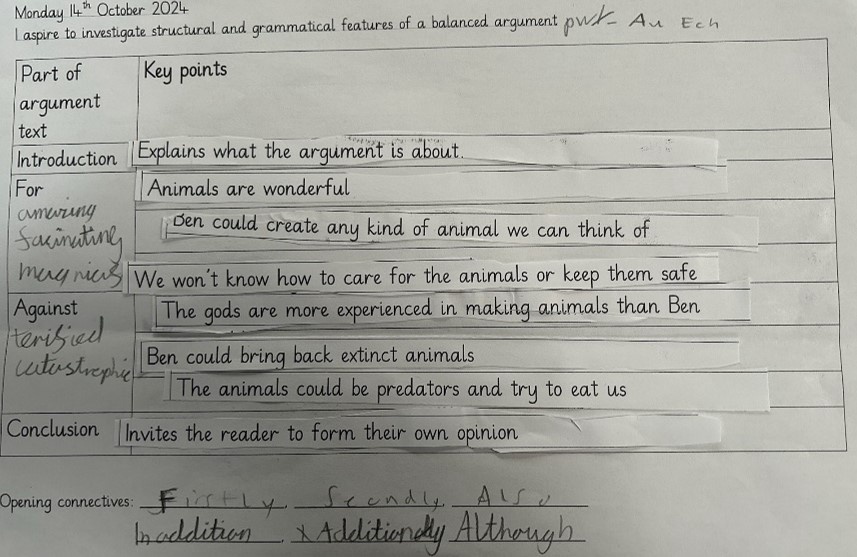 Monday 14th October 2024
I aspire to investigate structural and grammatical features of a balanced argument
Part of argument text
Key points
Introduction
Explains what the argument is about.
For
amazing
facinating
Animals are wonderful
Ben could create any kind of animal we can think of
We won't know how to care for the animals or keep them safe
Against
terified
catastrophic
The gods are more experienced in making animals than Ben
Ben could bring back extinct animals
The animals could be predators and try to eat us
Conclusion
Invites the reader to form their own opinion
Opening connectives: Firstly, Secndly, Also
In addition, Additionally Although